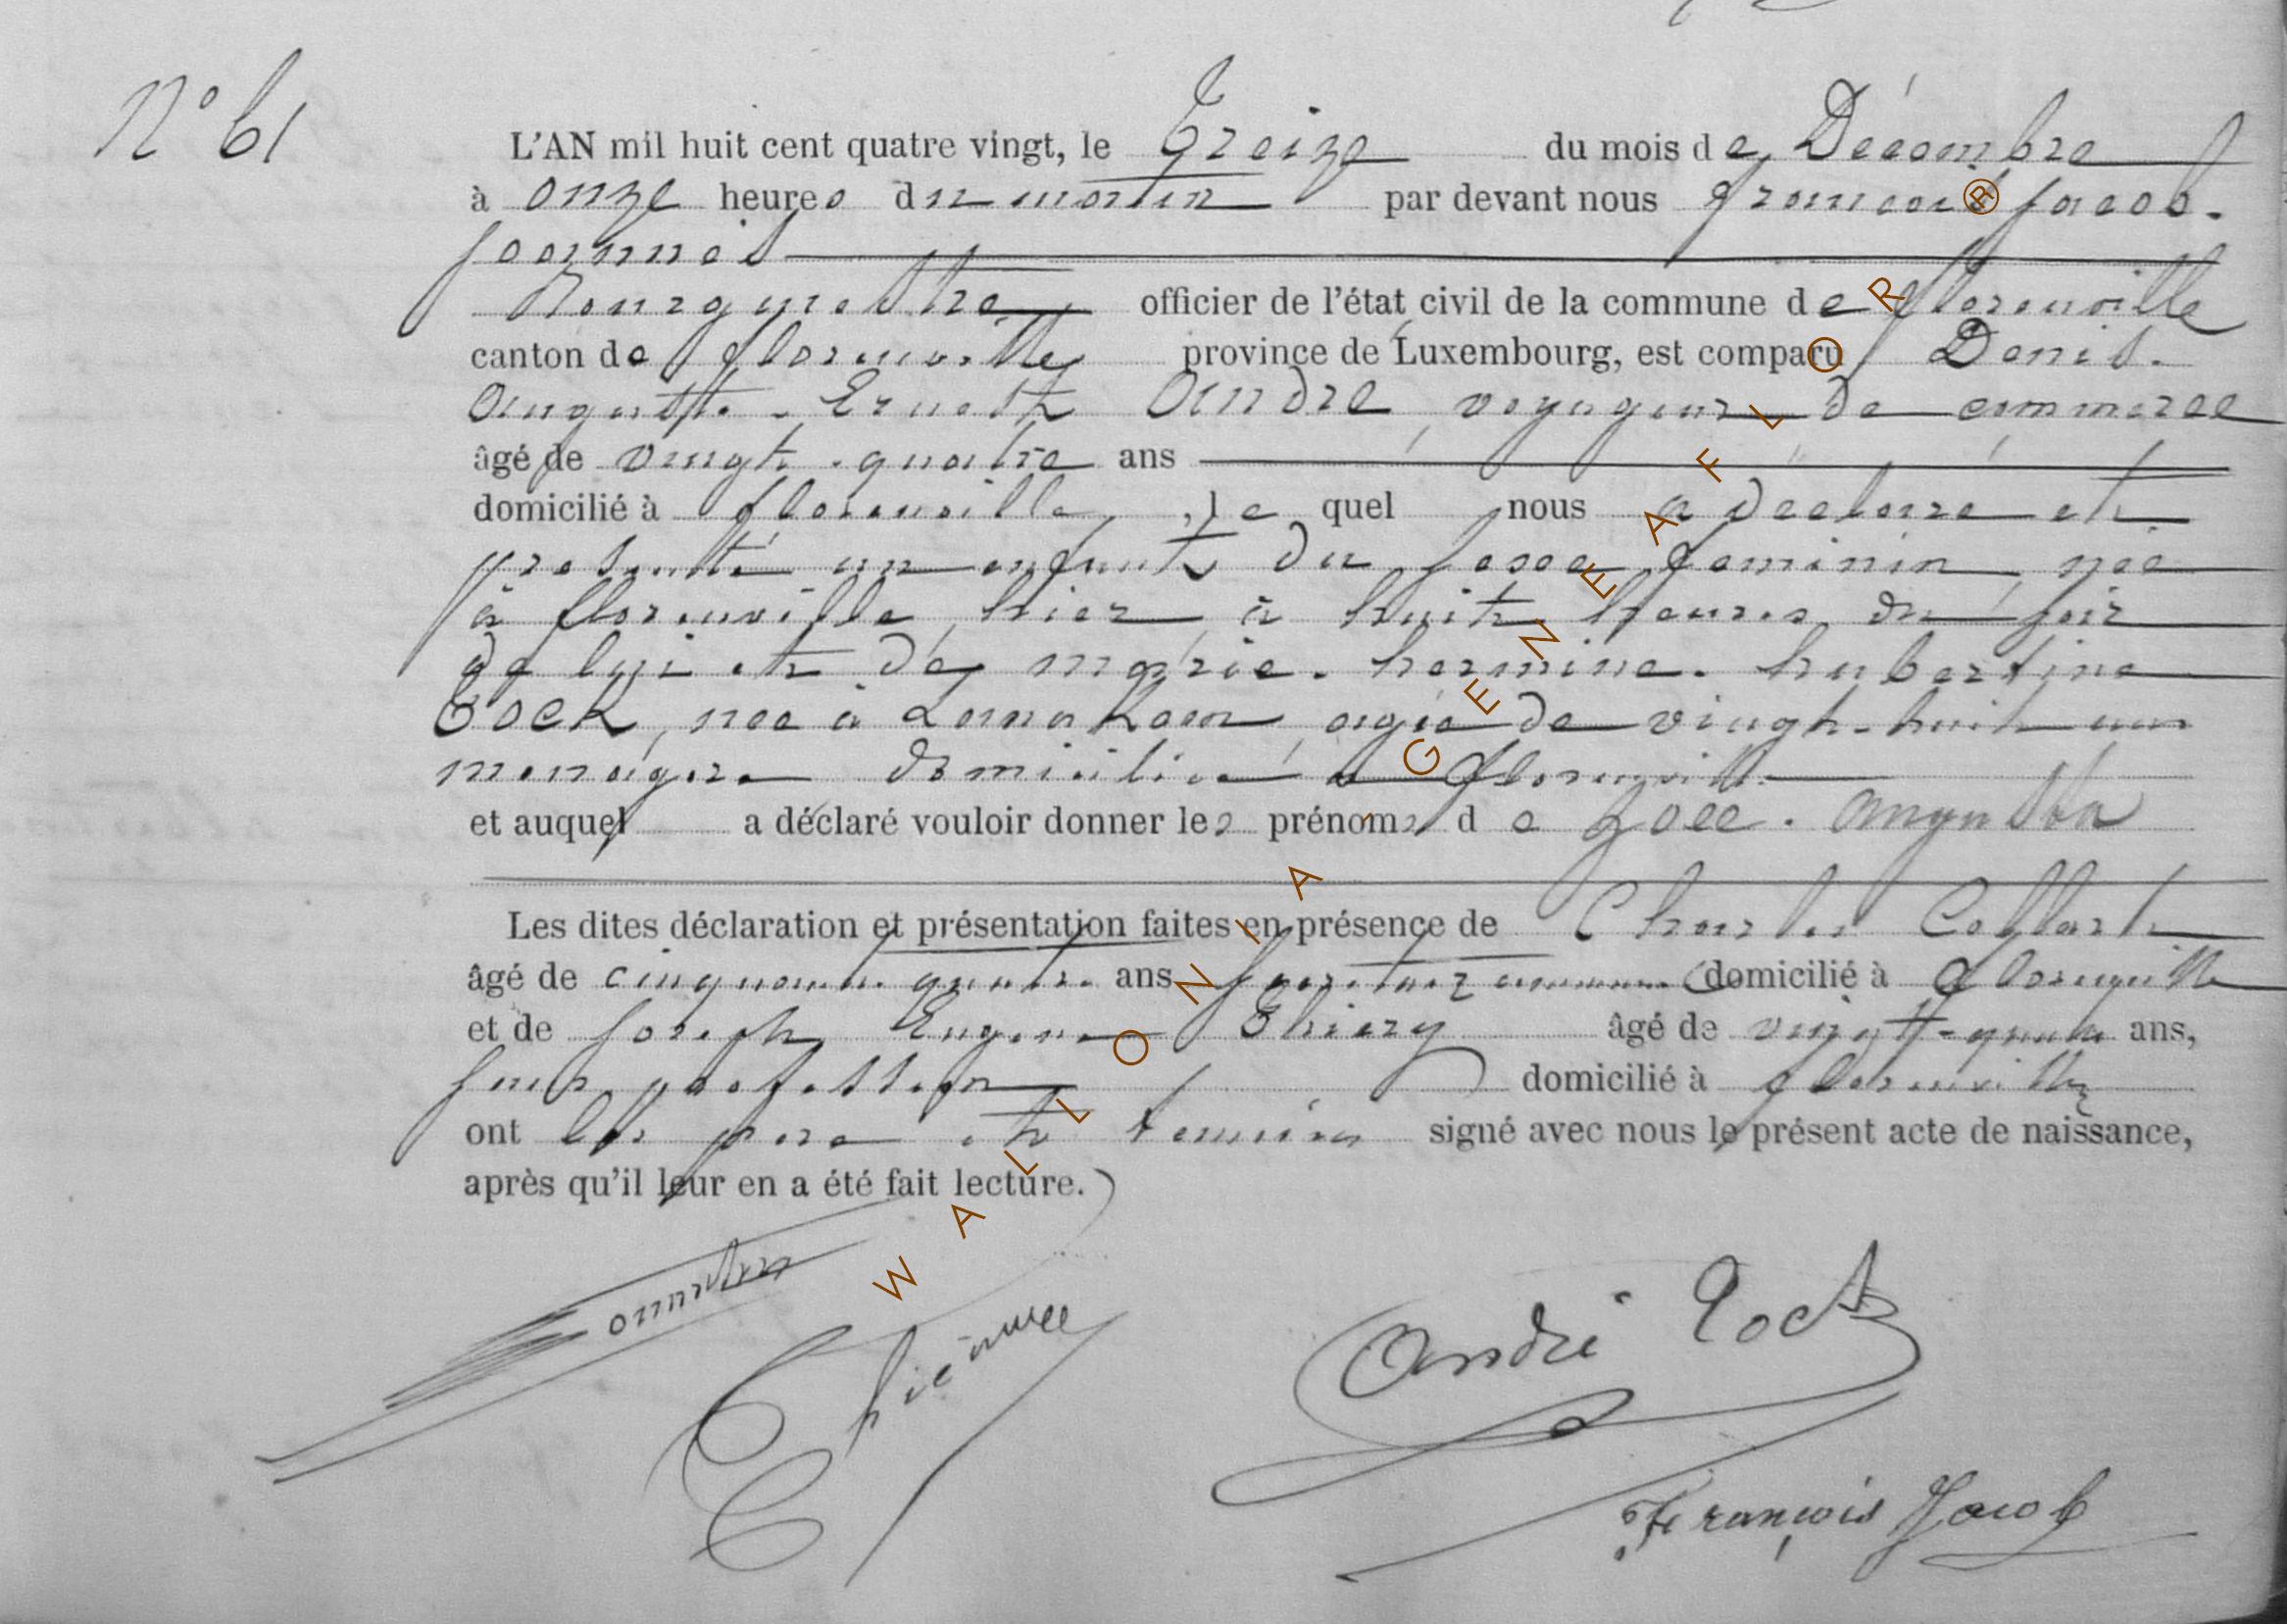 N° 61
L'AN mil huit cent quatre vingt, le Treize du mois de Décembre
à onze heures du matin par devant nous François Jacob.
Joannès
Bourgmestre officier de l'état civil de la commune de Florenville
canton de Florenville province de Luxembourg, est comparu Denis.
Auguste. Ernest André, voyageur de commerce
âgé de vingt-quatre ans
domicilié à Florenville, le quel nous a déclaré et
présenté un enfant du sexe féminin, née
à Florenville, hier à huit heures du soir
de lui et de Marie. hermine. hubertine
Tock, née à âgée de vingt-huit ans
ménagère domiciliée à Florenville
et auquel a déclaré vouloir donner les prénoms de Zoée. Augusta
Les dites déclaration et présentation faites en présence de Charles Collart
âgé de cinquante quatre ans, domicilié à Florenville
et de Joseph Eugène Thiery âgé de vingt-quatre ans,
sans profession domicilié à Florenville
ont les père et témoins signé avec nous le présent acte de naissance,
après qu'il leur en a été fait lecture.
André Tock
François Jacob
WALLONIA GENEAFLOR ®